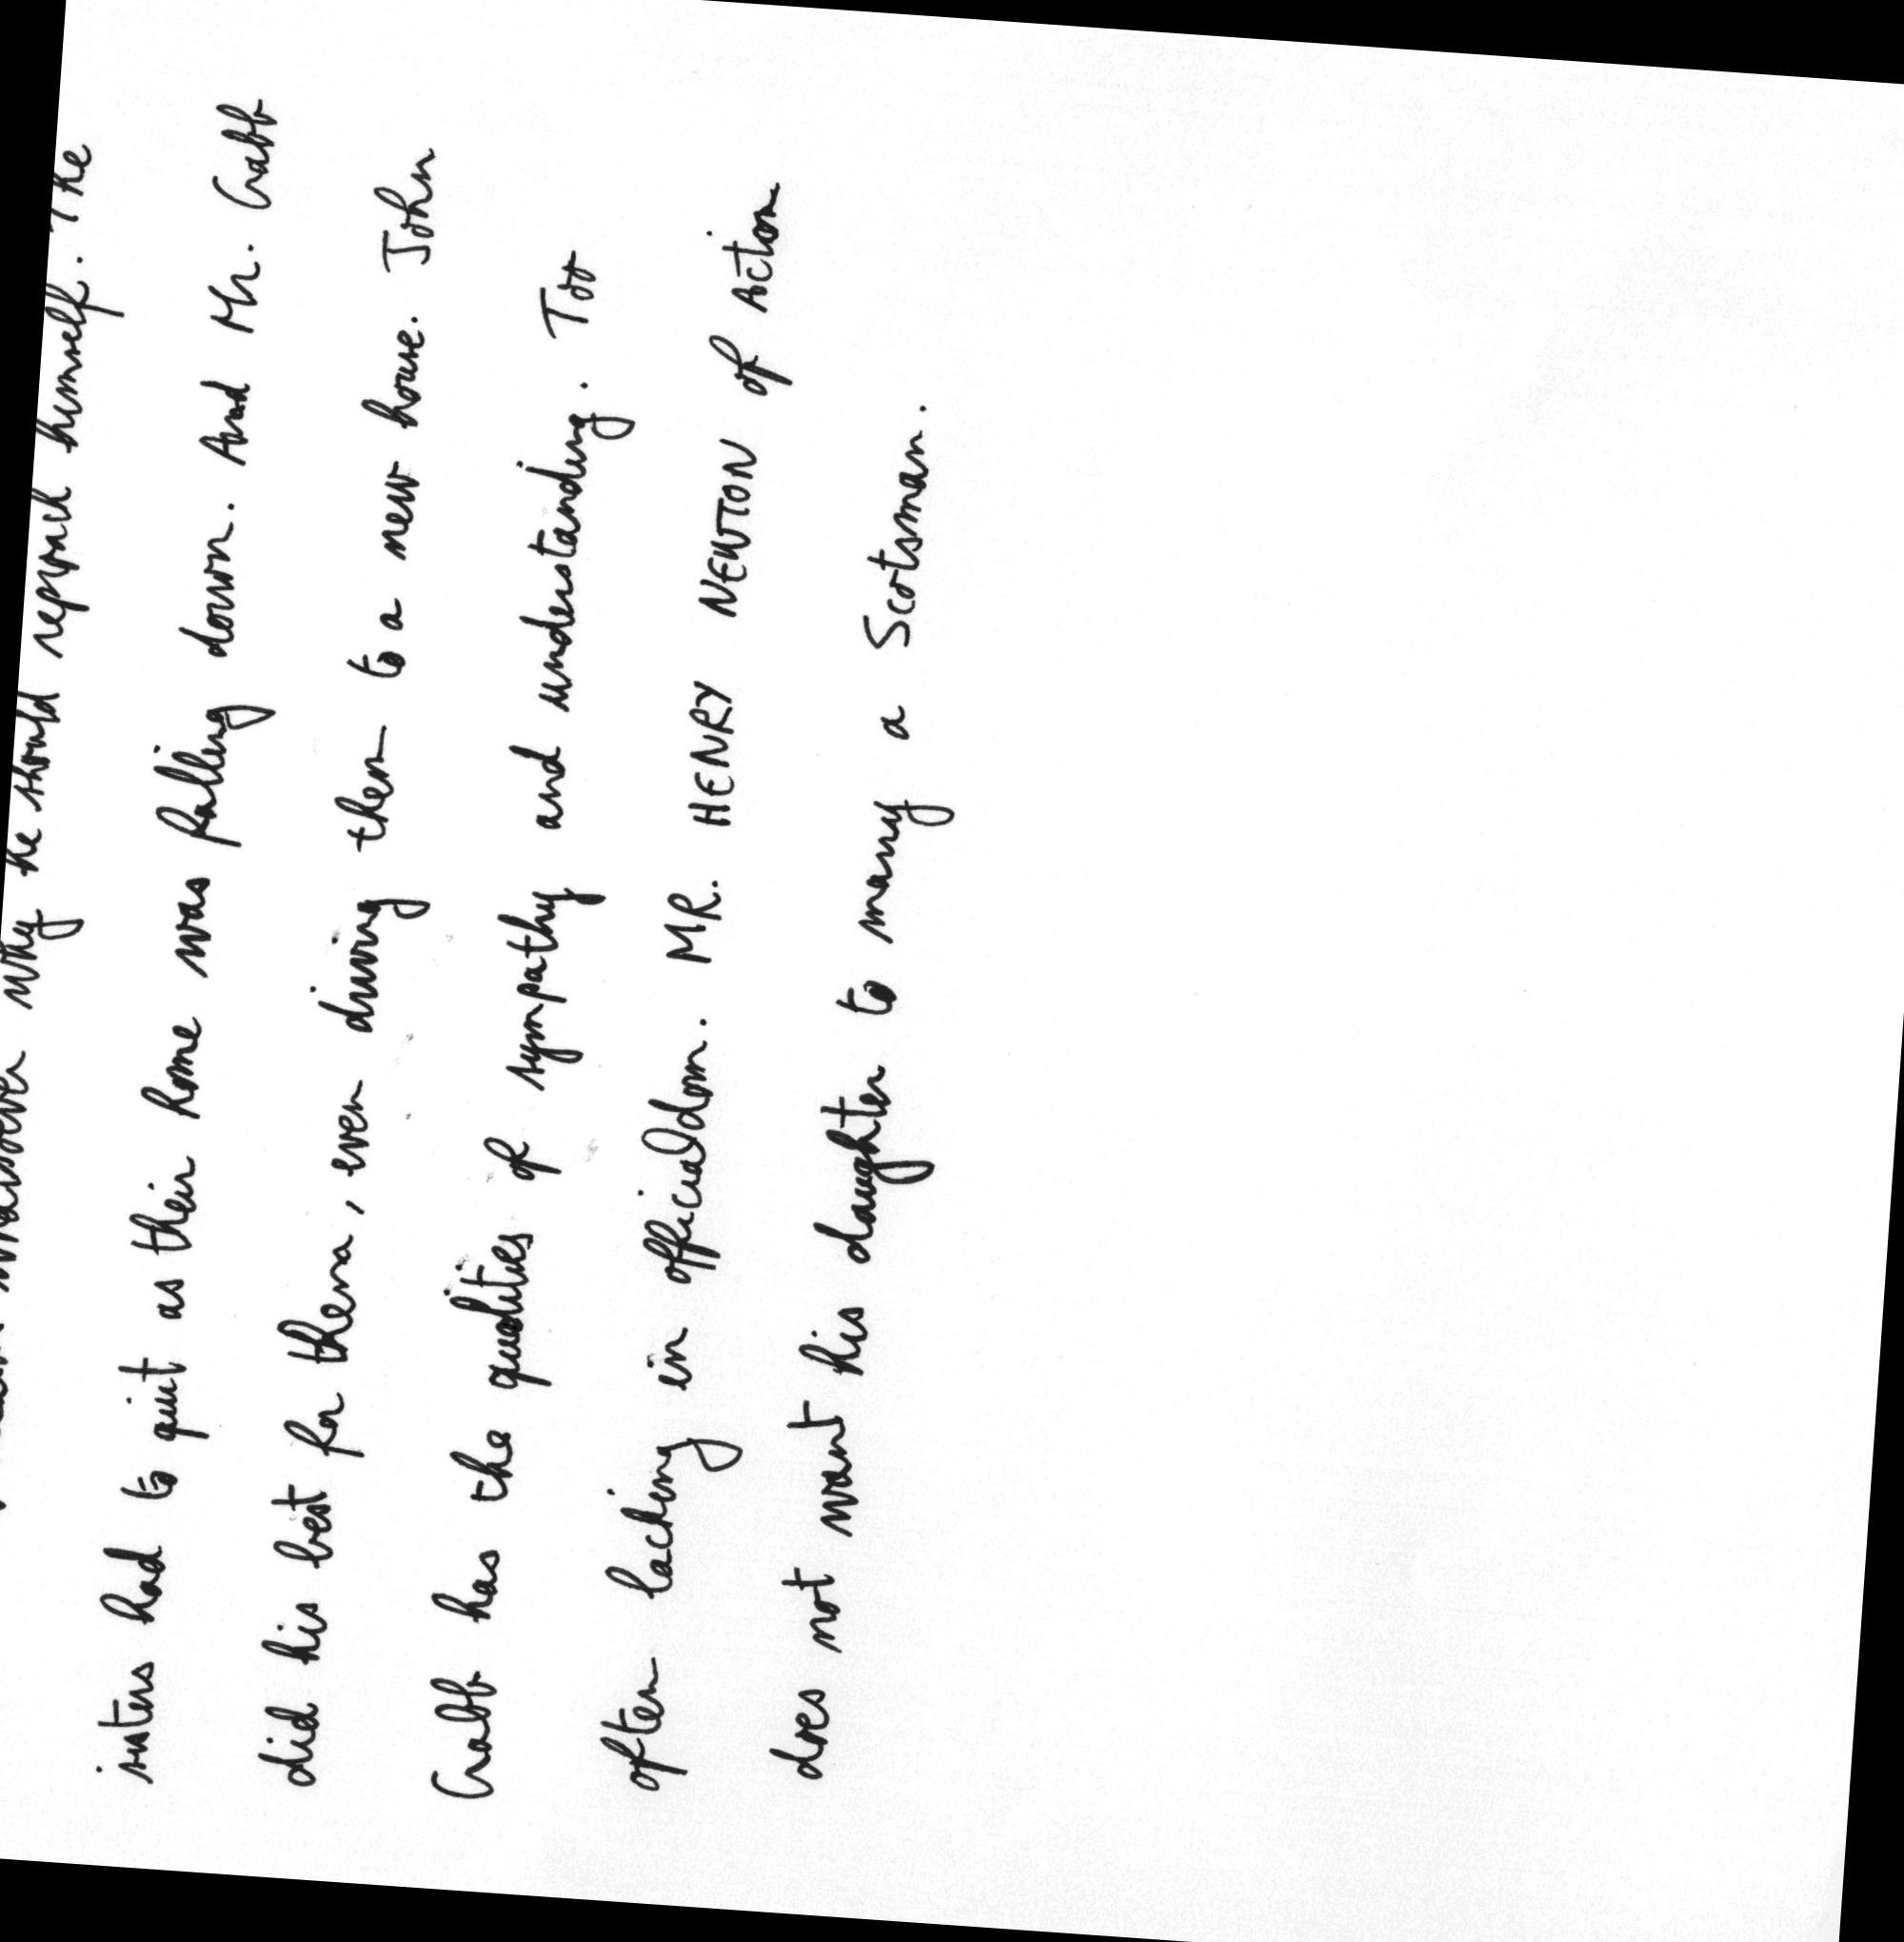 whatsoever why he should reproach himself. The
sisters had to quit as their home was falling down. And Mr. Crabb
did his best for them, even driving them to a new house. John
Crabb has the qualities of sympathy and understanding. Too
often lacking in officialdom. MR. HENRY NEWTON of Acton
does not want his daughter to marry a Scotsman.